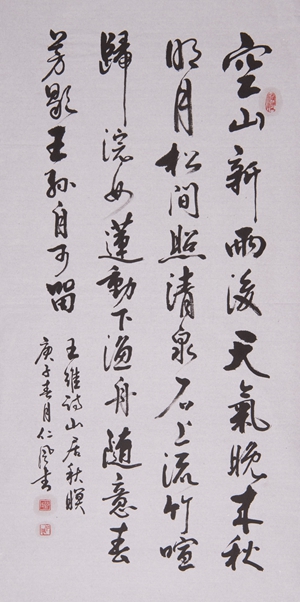 空山新雨後天氣晚来秋
明月松間照清泉石上流竹喧
歸浣女蓮動下漁舟随意春
芳歇王孫自可留
王維詩山居秋暝
庚子春月仁风书